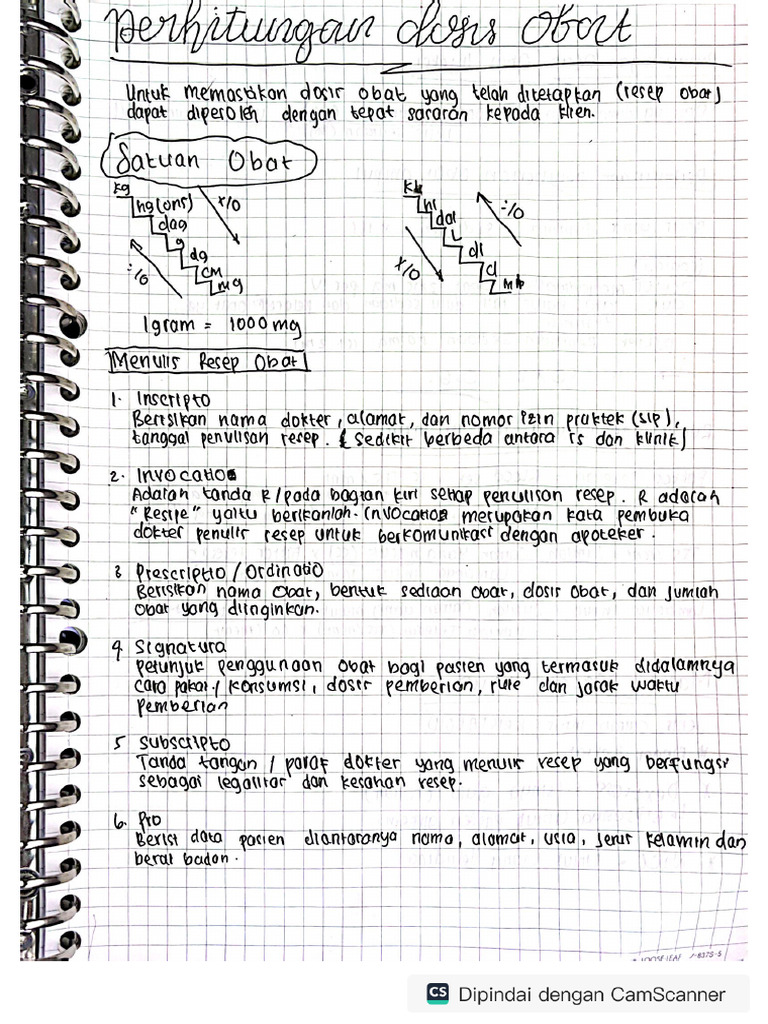 Perhitungan dosis Obat
Untuk memastikan dosir obat yang telah ditetapkan (resep obat)
dapat diperoleh dengan tepat sararan kepada klien.
Satuan Obat
kg
hg (ons)
dag
g
dg
cm
mg
x10
:10
kl
hl
dal
L
dl
cl
ml
:10
x10
1 gram = 1000 mg
Menulis Resep Obat
1. Inscripto
Berisikan nama dokter, alamat, dan nomor izin praktek (sip),
tanggal penulisan resep. (sedikit berbeda antara rs dan klinik)
2. Invocatio
Adalah tanda R/pada bagian kiri setiap penulison resep. R adalah
"Resipe" yaitu berikanlah. Invocatio merupakan kata pembuka
dokter penulir resep untuk berkomunikasi dengan apoteker.
3 Prescriptio / Ordinatio
Berisikan nama Obat, bentuk sediaan Obat, dosir obat, dan jumlah
Obat yang diinginkan.
4. Signatura
petunjuk penggunaan obat bagi pasien yang termasuk didalamnya
cara pakai / konsumsi, dosir pemberian, rute dan jarak waktu
pemberian
5 Subscripto
Tanda tangan / paraf dokter yang menulir resep yang berfungsi
sebagai legalitar dan kesahan resep.
6. Pro
Berisi data pasien diantaranya nama, alamat, usia, jenir kelamin dan
berat badan.
LOOSE LEAF
CS Dipindai dengan CamScanner